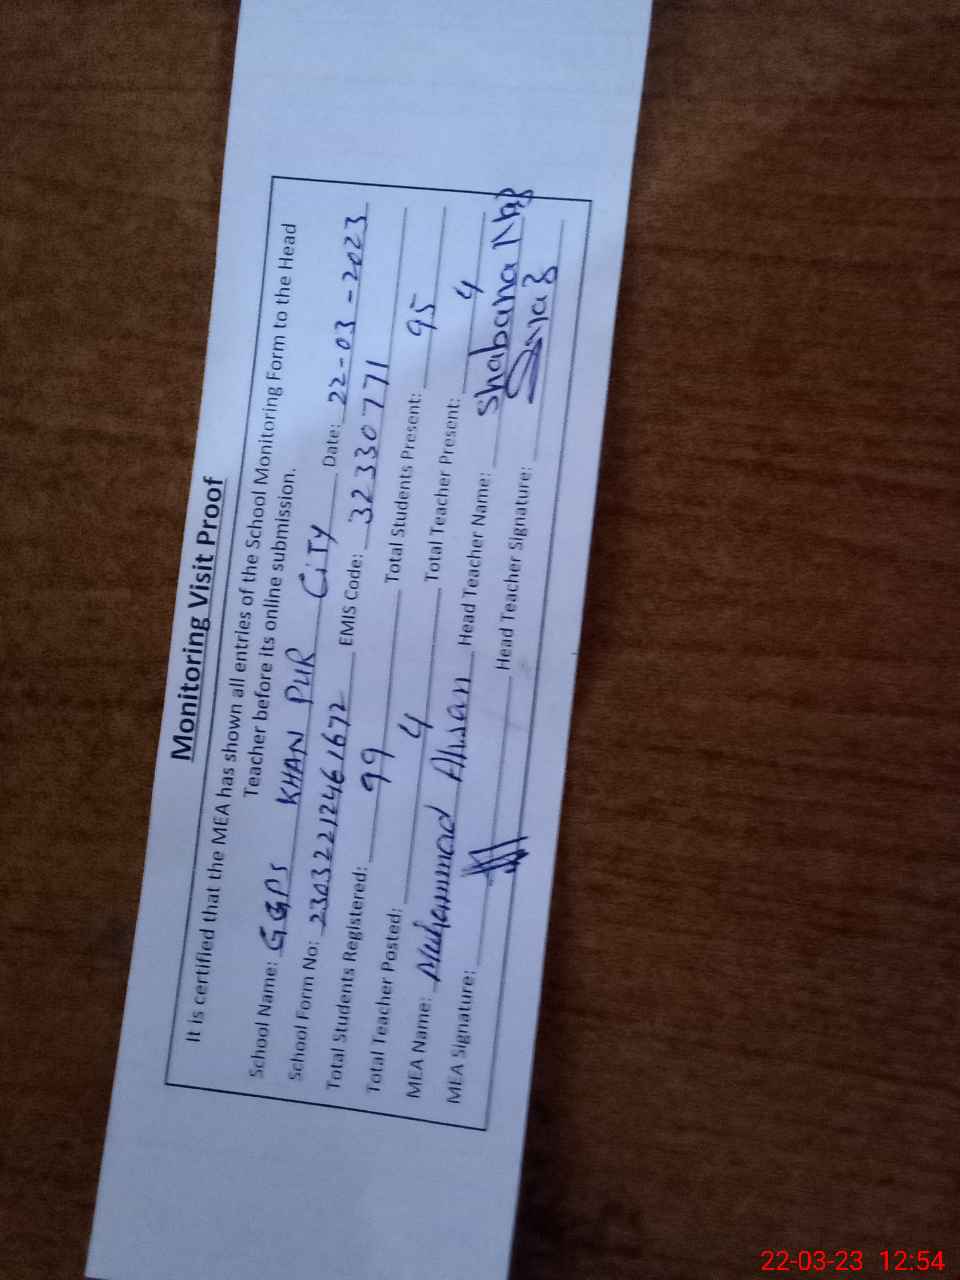 Monitoring Visit Proof
It is certified that the MEA has shown all entries of the School Monitoring Form to the Head
Teacher before its online submission.
School Name: GGPS KHAN PUR CITY Date: 22-03-2023
School Form No: 230322121461672 EMIS Code: 32330771
Total Students Registered: 99 Total Students Present: 95
Total Teacher Posted: 4 Total Teacher Present: 4
MEA Name: Muhammad Ahsan Head Teacher Name: Shabana Naz
MEA Signature: Head Teacher Signature:
22-03-23 12:54